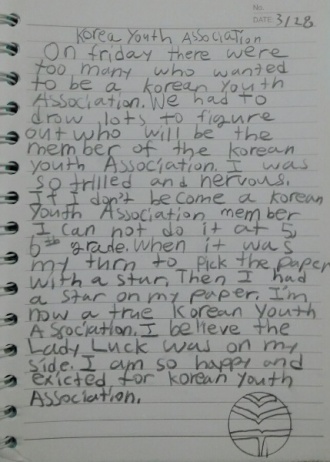 No.
DATE 3/28
Korea Youth Association
On friday there were
too many who wanted
to be a korean Youth
Association. We had to
drow lots to figure
out who will be the
member of the korean
youth Association. I was
so trilled and nervous.
If I don't become a korean
Youth Association member
I can not do it at 5,
6th grade. When it was
my turn to Pick the paper
with a stur, Then I had
a star on my paper. I'm
now a true korean Youth
Association. I believe the
Lady Luck was on my
side. I am so happy and
exicted for korean Youth
Association.